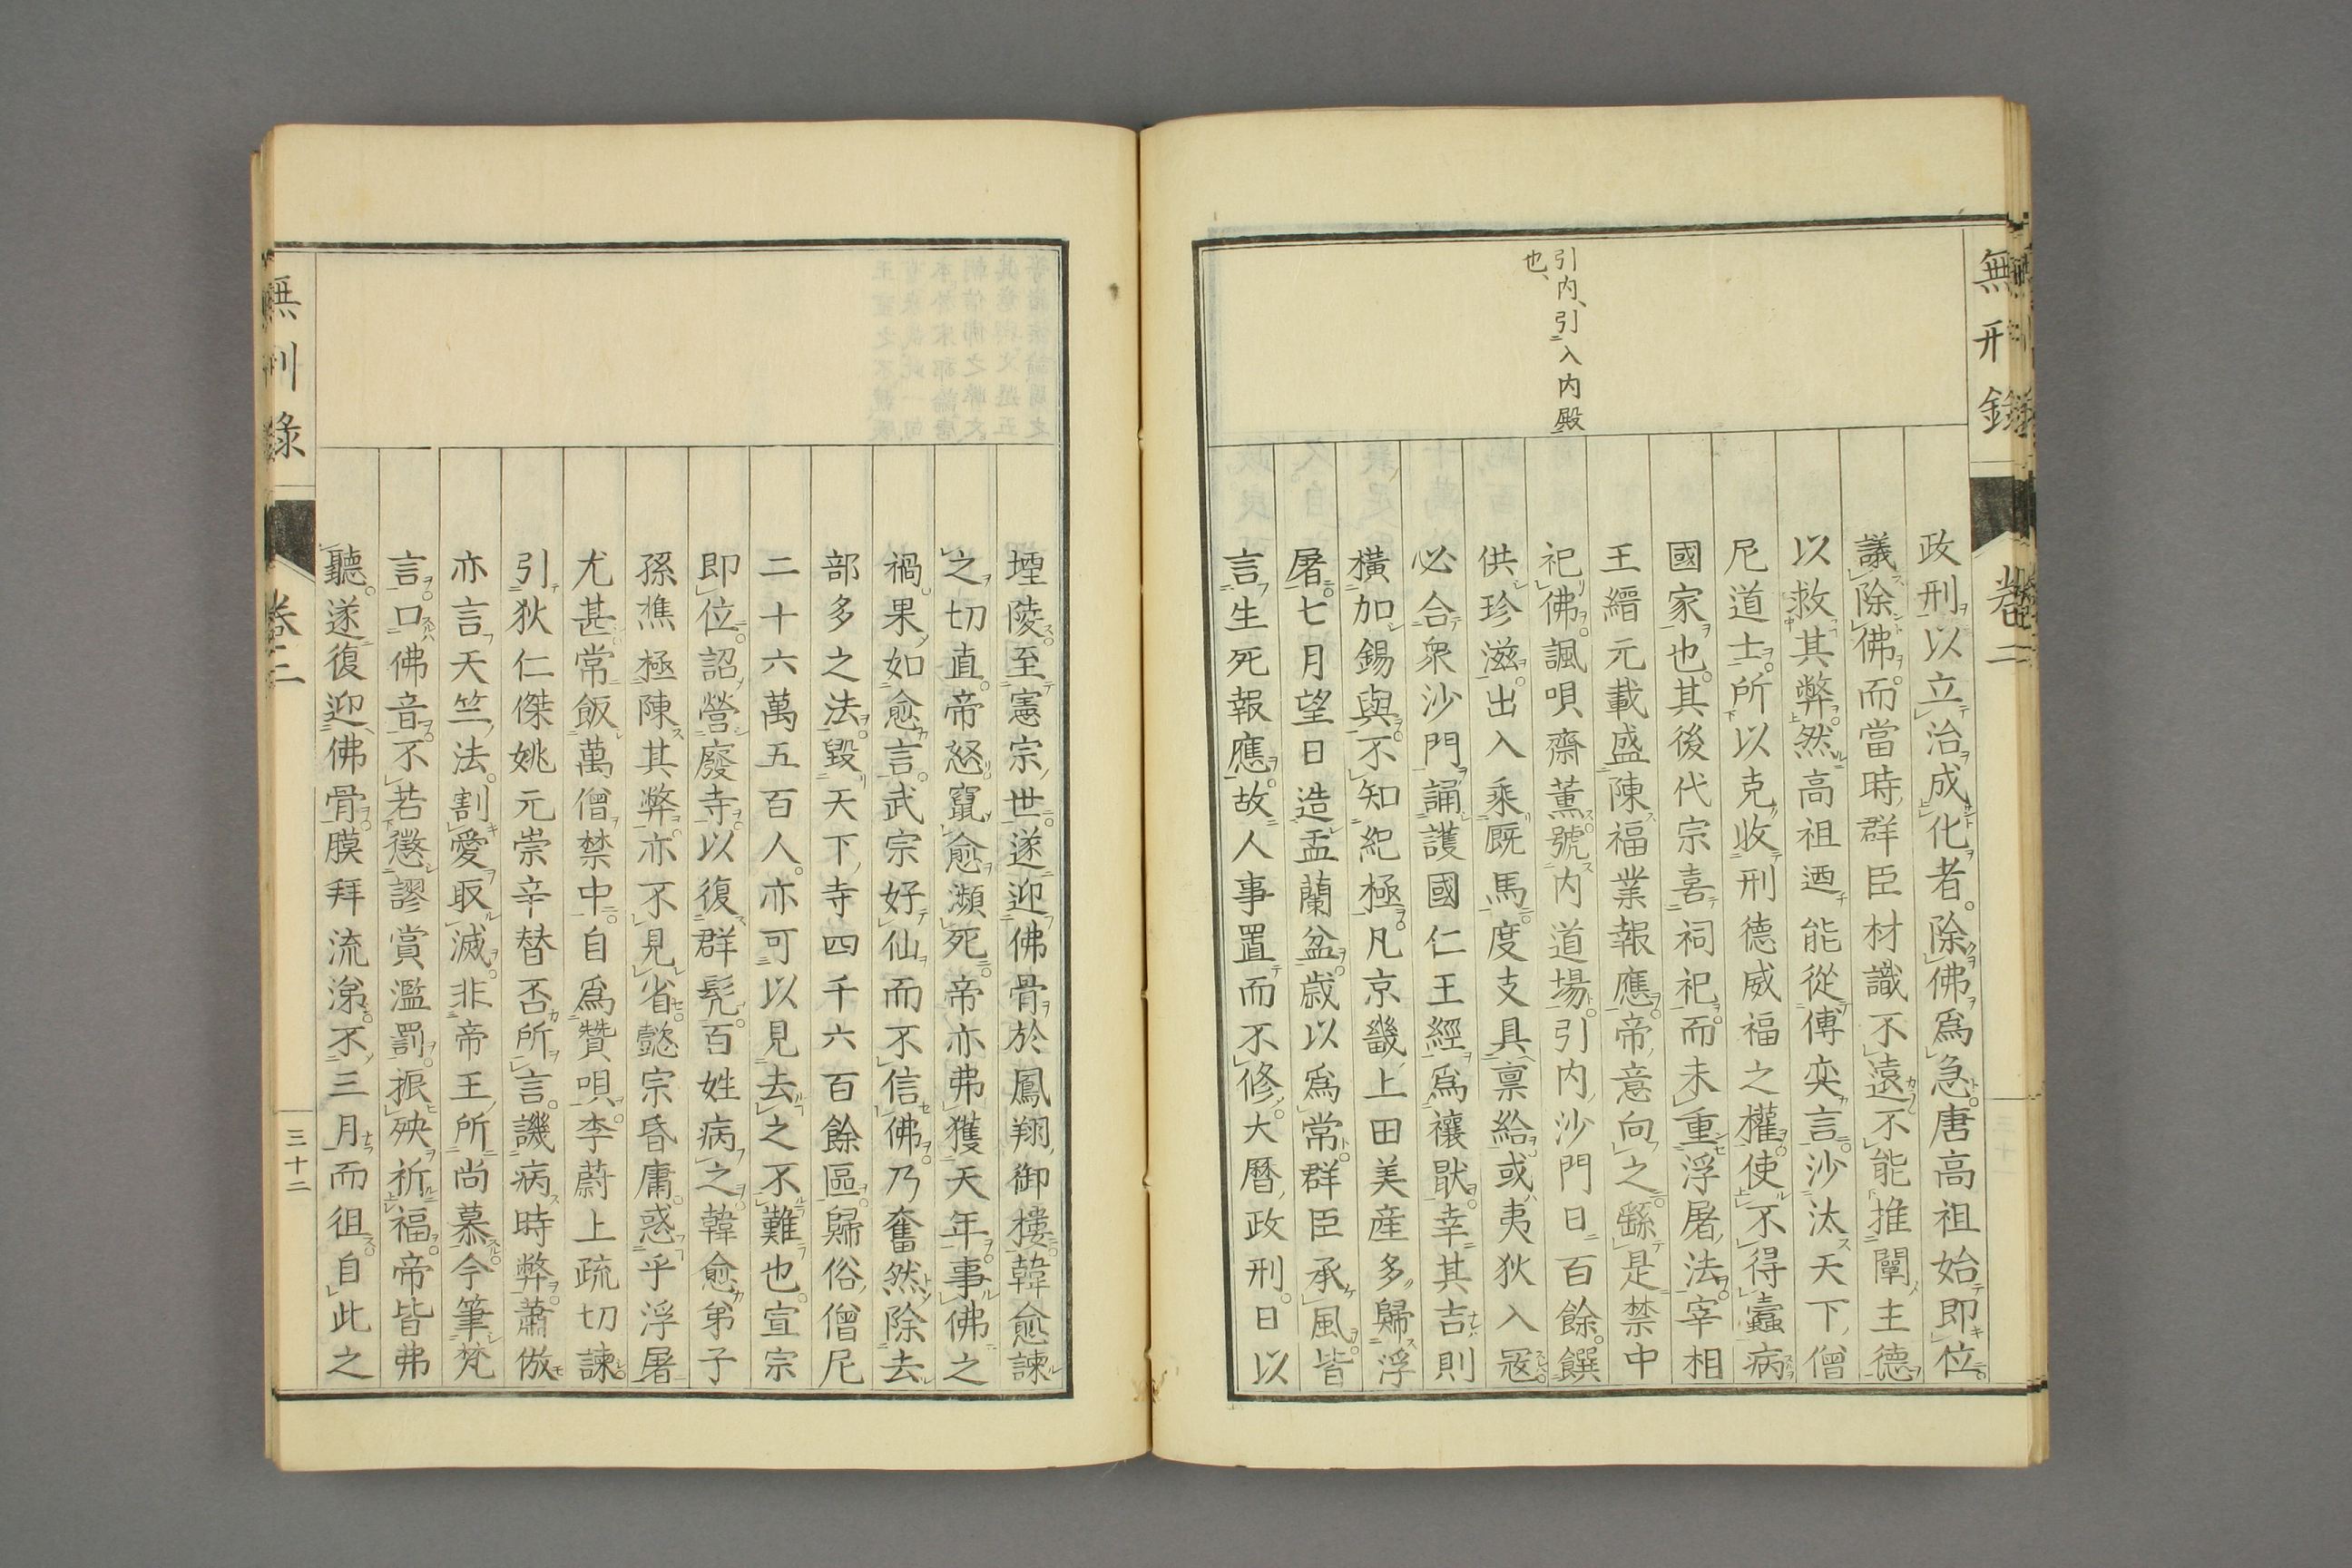 無刑錄
卷二
引内、引入内殿
也、
政刑以立治成化者。除佛爲急。唐高祖始即位。
議除佛。而當時群臣材識不遠。不能推闡主德
以救其弊。然高祖迺能從傅奕言。沙汰天下僧
尼道士。所以克收刑德威福之權。使不得蠹病
國家也。其後代宗喜祠祀。而未重浮屠法。宰相
王縉元載盛陳福業報應。帝意向之。繇是禁中
祀佛。諷唄齋薰號内道場。引内沙門日百餘。饌
供珍滋。出入乘厩馬。度支具稟給。或夷狄入寇。
必合衆沙門。誦護國仁王經。爲禳猒。幸其吉則
橫加錫與。不知紀極。凡京畿上田美産多歸浮
屠。七月望日造盂蘭盆。歲以爲常。群臣承風。皆
言生死報應。故人事置而不修。大曆政刑。日以
堙陵。至憲宗世。遂迎佛骨於鳳翔。御樓。韓愈諫
之切直。帝怒竄愈瀕死。帝亦弗獲天年。事佛之
禍。果如愈言。武宗好仙而不信佛。乃奮然除去
部多之法。毀天下寺四千六百餘區。歸俗僧尼
二十六萬五百人。亦可以見去之不難也。宣宗
即位。詔營廢寺。以復群髠。百姓病之。韓愈弟子
孫樵極陳其弊。亦不見省。懿宗昏庸。惑乎浮屠
尤甚。常飯萬僧禁中。自爲贊唄。李蔚上疏切諫。
引狄仁傑姚元崇辛替否所言。譏病時弊。蕭倣
亦言天竺法。割愛取滅。非帝王所尚慕。今筆梵
言。口佛音。不若懲謬賞濫罰。振殃祈福。帝皆弗
聽。遂復迎佛骨。膜拜流涕。不三月而徂。自此之
無刑錄
卷二
三十二